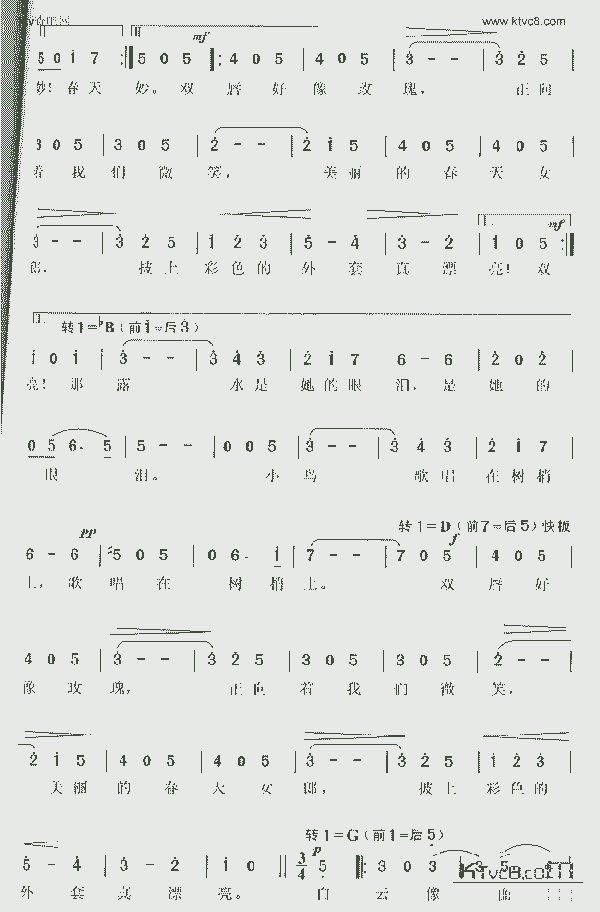 www.ktvc8.com
mf
5 0 i 7 :| 5 0 5 |: 4 0 5 | 4 0 5 | 3 - - | 3 2 5 |
妙!春天 妙。双 唇 好 像 玫 瑰, 正向
3 0 5 | 3 0 5 | 2 - - | 2 i 5 | 4 0 5 | 4 0 5 |
着 我 们 微 笑, 美丽 的 春 天 女
3 - - | 3 2 5 | i 2 3 | 5 - 4 | 3 - 2 | i 0 5 :|
mf
郎, 披上 彩色的 外 套 真 漂 亮!双
转1=♭B(前i=后3)
i 0 i | 3 - - | 3 4 3 | 2 i 7 | 6 - 6 | 2 0 2 |
亮!那 露 水是 她的眼 泪,是 她 的
0 5 6· 5 | 5 - - | 0 0 5 | 3 - - | 3 4 3 | 2 i 7 |
眼 泪。 小 鸟 歌唱 在树梢
转1=D(前7=后5)快板
pp
f
6 - 6 | 5 0 5 | 0 6· i | 7 - - | 7 0 5 | 4 0 5 |
上,歌 唱 在 树 梢 上。 双 唇 好
4 0 5 | 3 - - | 3 2 5 | 3 0 5 | 3 0 5 | 2 - - |
像 玫 瑰, 正向 着 我 们 微 笑,
2 i 5 | 4 0 5 | 4 0 5 | 3 - - | 3 2 5 | i 2 3 |
美丽 的 春 天 女 郎, 披上 彩色的
转1=G(前1=后5)
p
5 - 4 | 3 - 2 | i 0 || 3/4 5 |: 3 0 3
外 套 真 漂 亮。 白 云 像
KTVC8.COM